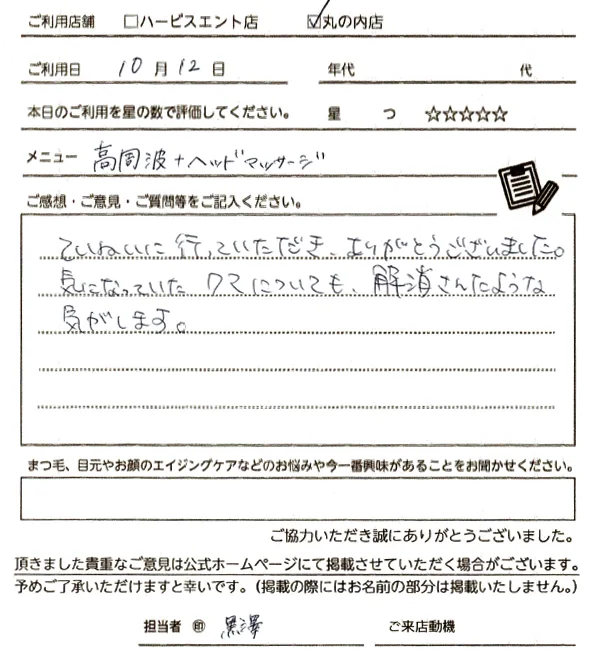 ご利用店舗 □ハービスエント店 ☑丸の内店
ご利用日 10月12日 年代 代
本日のご利用を星の数で評価してください。 星 つ ☆☆☆☆☆
メニュー 高周波+ヘッドマッサージ
ご感想・ご意見・ご質問等をご記入ください。
ていねいに行っていただき、ありがとうございました。
気になっていたクマについても、解消さんたような
気がします。
まつ毛、目元やお顔のエイジングケアなどのお悩みや今一番興味があることをお聞かせください。
ご協力いただき誠にありがとうございました。
頂きました貴重なご意見は公式ホームページにて掲載させていただく場合がございます。
予めご了承いただけますと幸いです。（掲載の際にはお名前の部分は掲載いたしません。）
担当者 ㊞ 黒澤 ご来店動機